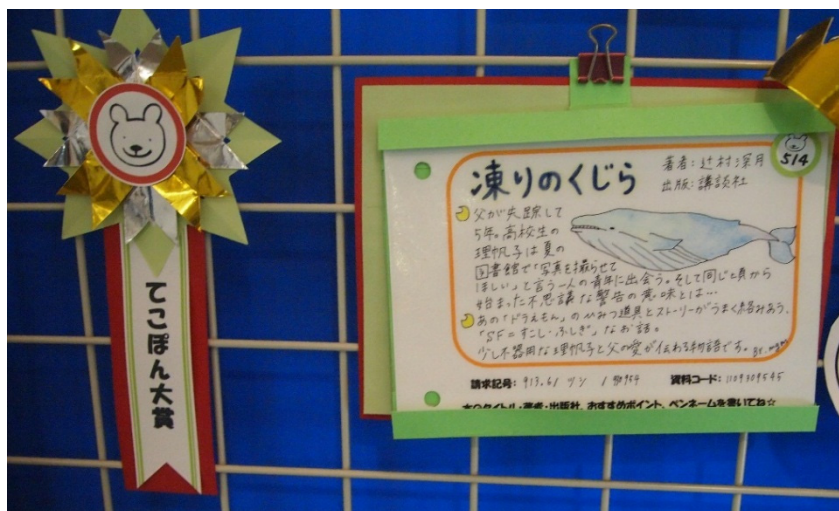 てこぽん大賞
514
凍りのくじら
著者:辻村深月
出版:講談社
父が失踪して
5年。高校生の
理帆子は夏の
図書館で「写真を撮らせて
ほしい」と言う一人の青年に出会う。そして同じ頃から
始まった不思議な警告の意味とは…
あの「ドラえもん」のひみつ道具とストーリーがうまく絡みあう、
「SF=すこし・ふしぎ」なお話。
少し不器用な理帆子と父の愛が伝わる物語です。
請求記号: 913.61 ツジ
資料コード: 1109309545
タイトル・著者・出版社、おすすめポイント、ペンネームを書いてね☆